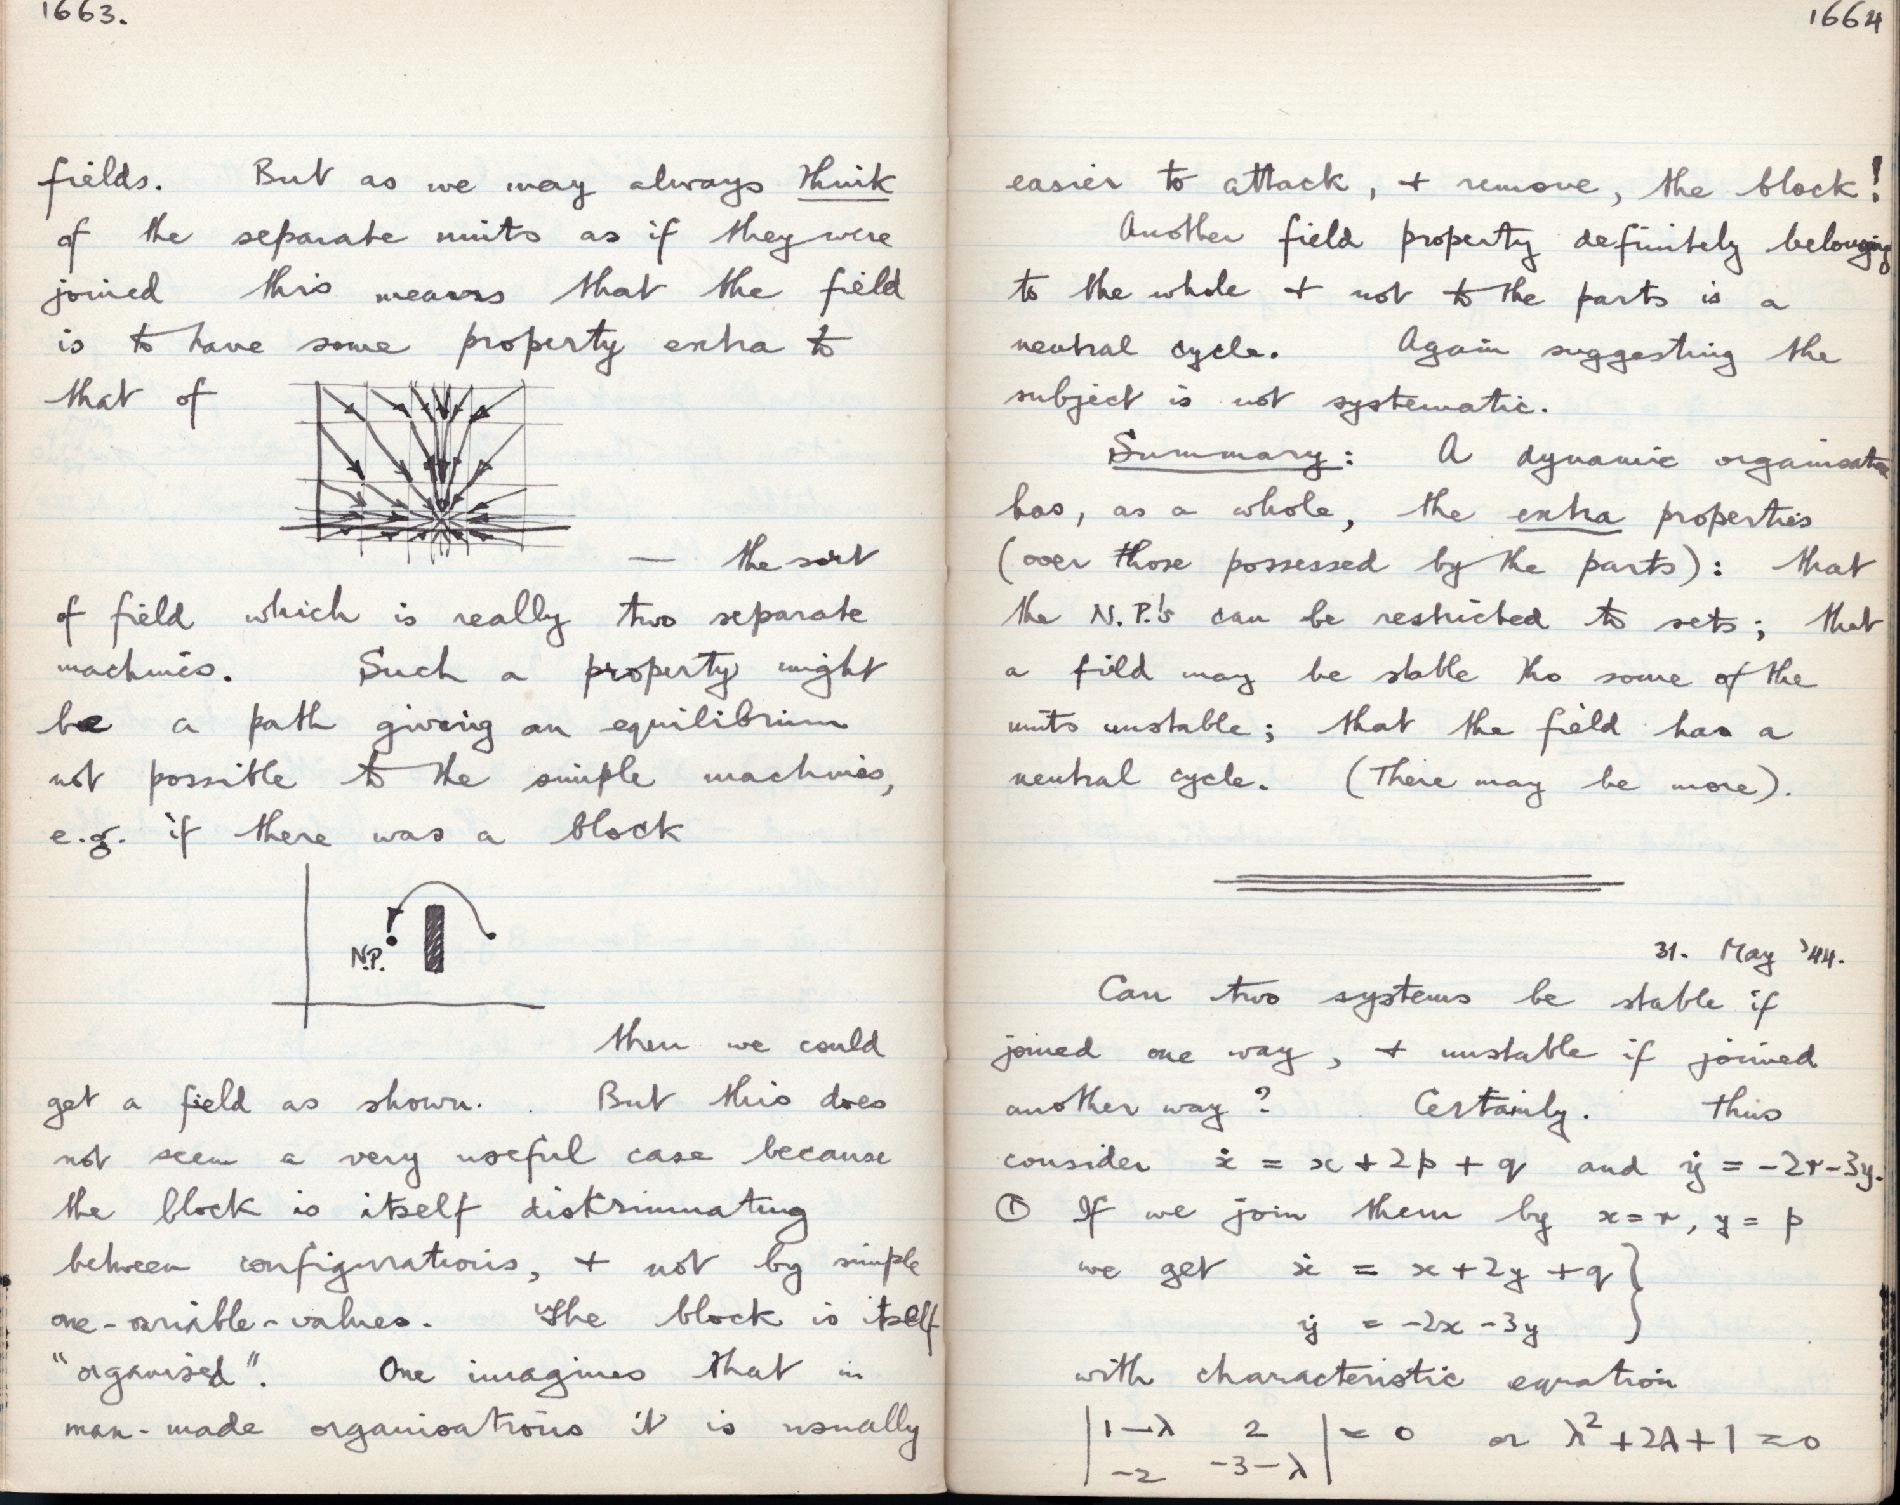 1663.
fields. But as we may always think
of the separate units as if they were
joined this means that the field
is to have some property extra to
that of
— the sort
of field which is really two separate
machines. Such a property might
be a path giving an equilibrium
not possible to the simple machines,
e.g. if there was a block
N.P.
then we could
get a field as shown. But this does
not seem a very useful case because
the block is itself distkriminating
between configurations, + not by simple
one-variable-values. The block is itself
"organised". One imagines that in
man-made organisations it is usually
1664
easier to attack, + remove, the block!
Another field property definitely belonging
to the whole + not to the parts is a
neutral cycle. Again suggesting the
subject is not systematic.
Summary: A dynamic organisation
has, as a whole, the extra properties
(over those possessed by the parts): that
the N.P.'s can be restricted to sets; that
a field may be stable tho some of the
units unstable; that the field has a
neutral cycle. (There may be more).
31. May '44.
Can two systems be stable if
joined one way, + unstable if joined
another way? Certainly. Thus
consider ẋ = x + 2p + q and ẏ = -2r-3y.
① If we join them by x=r, y = p
we get ẋ = x+2y +q }
ẏ = -2x -3y }
with characteristic equation
| 1-λ 2 | = 0 or λ²+2λ+1 = 0
| -2 -3-λ |